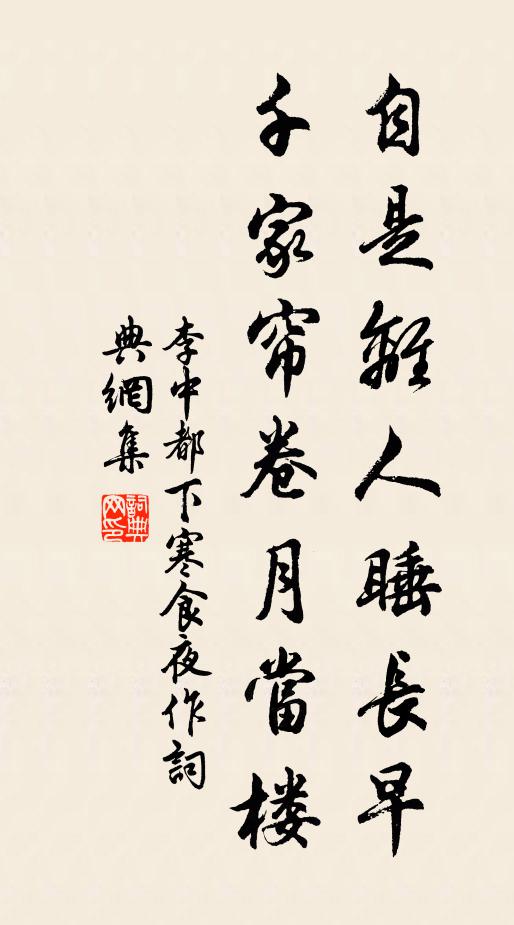 自是離人睡長早
千家帘卷月當楼
李中都下寒食夜作詞
典網集
詞典
网印